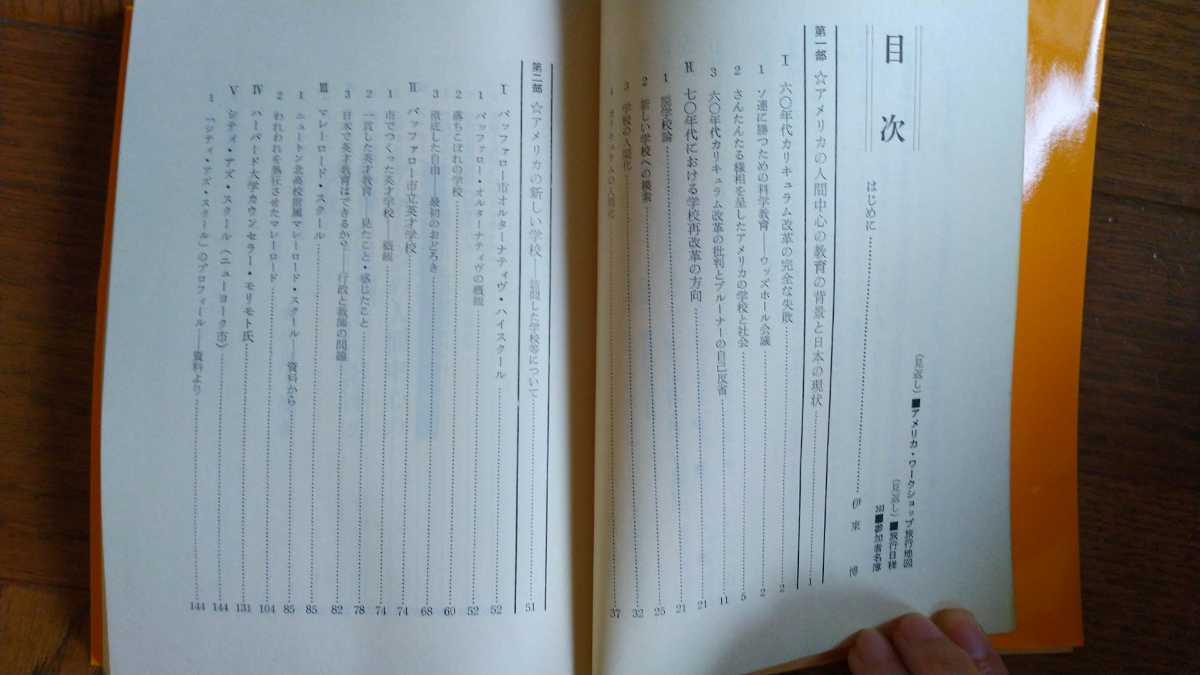 目次
(見返し)■アメリカ・ワークショップ旅行地図
(見返し)■旅行日程
■参加者名簿
はじめに……伊東 博
第一部 ☆アメリカの人間中心の教育の背景と日本の現状……1
Ⅰ 六〇年代カリキュラム改革の完全な失敗……2
1 ソ連に勝つための科学教育——ウッズホール会議……2
2 さんたんたる様相を呈したアメリカの学校と社会……5
3 六〇年代カリキュラム改革の批判とブルーナーの自己反省……11
Ⅱ 七〇年代における学校再改革の方向……21
1 脱学校論……21
2 新しい学校への模索……25
3 学校の人間化……32
4 カリキュラムの人間化……37
第二部 ☆アメリカの新しい学校——訪問した学校等について……51
Ⅰ バッファロー市オルターナティヴ・ハイスクール……52
1 バッファロー・オルターナティヴの概観……52
2 落ちこぼれの学校……60
3 徹底した自由——最初のおどろき……68
Ⅱ バッファロー市立英才学校……74
1 市でつくった英才学校——概観……74
2 一貫した英才教育——見たこと・感じたこと……78
3 日本で英才教育はできるか?——行政と教師の問題……82
Ⅲ マレーロード・スクール……85
1 ニュートン北高校附属マレーロード・スクール——資料から……85
2 われわれを熱狂させたマレーロード……104
Ⅳ ハーバード大学カウンセラー・モリモト氏……131
Ⅴ シティ・アズ・スクール(ニューヨーク市)……144
1 「シティ・アズ・スクール」のプロフィール——資料より……144